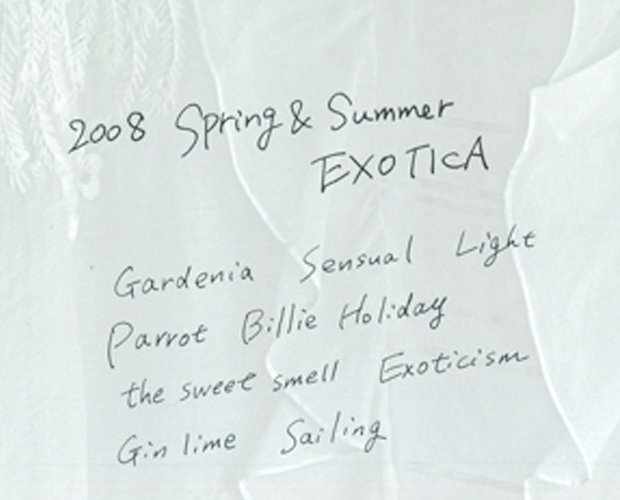 2008 Spring & Summer
EXOTICA
Gardenia Sensual Light
Parrot Billie Holiday
the sweet smell Exoticism
Gin lime Sailing